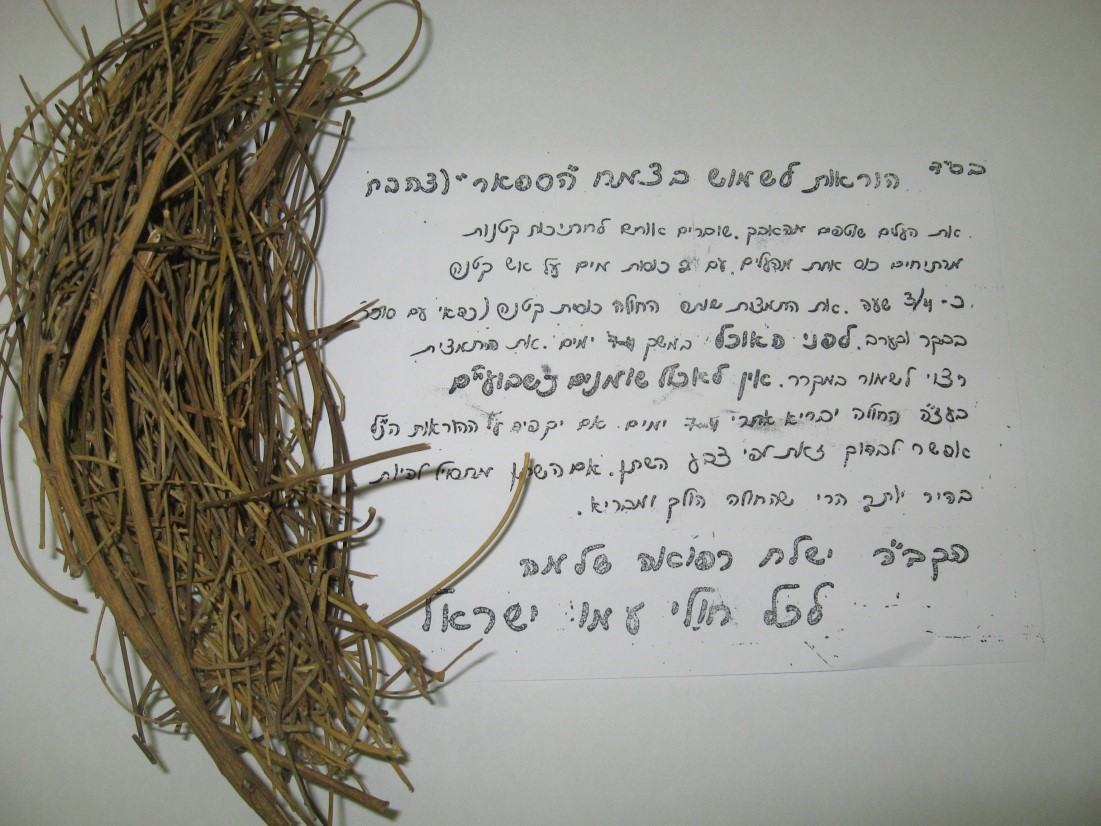 בס"ד
הוראות לשמוש בצמח "הספאר" (צהבת
את העלים שוטפים מהאבק. שוברים אותם לחתיכות קטנות.
מרתיחים כוס אחת מהעלים. עם 2 כוסות מים על אש קטנה
כ- 3/4 שעה. את התמצית שותה החולה כוסית קטנה (כדאי עם סוכר
בבקר ובערב. לפני האוכל במשך ימים. את התמצית
רצוי לשמור במקרר. אין לאכול שומנים כשבועיים
בעצ"ה החולה יבריא אחרי ימים. אם יקפיד על ההוראות הנ"ל
אפשר לבדוק זאת לפי צבע השתן. אם השתן מתחיל להיות
בהיר יותר הרי שהחולה הולך ומבריא.
הקב"ה ישלח רפואה שלמה
לכל חולי עמו ישראל